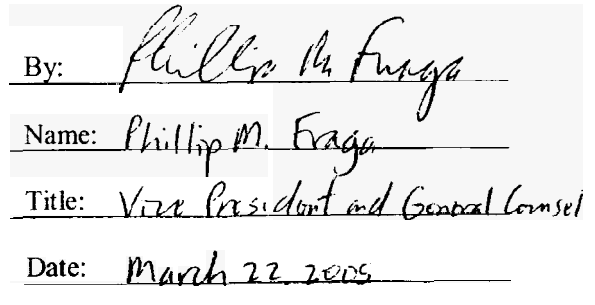 By: Phillip M Fraga
Name: Phillip M. Fraga
Title: Vice President and General Counsel
Date: March 22, 2005